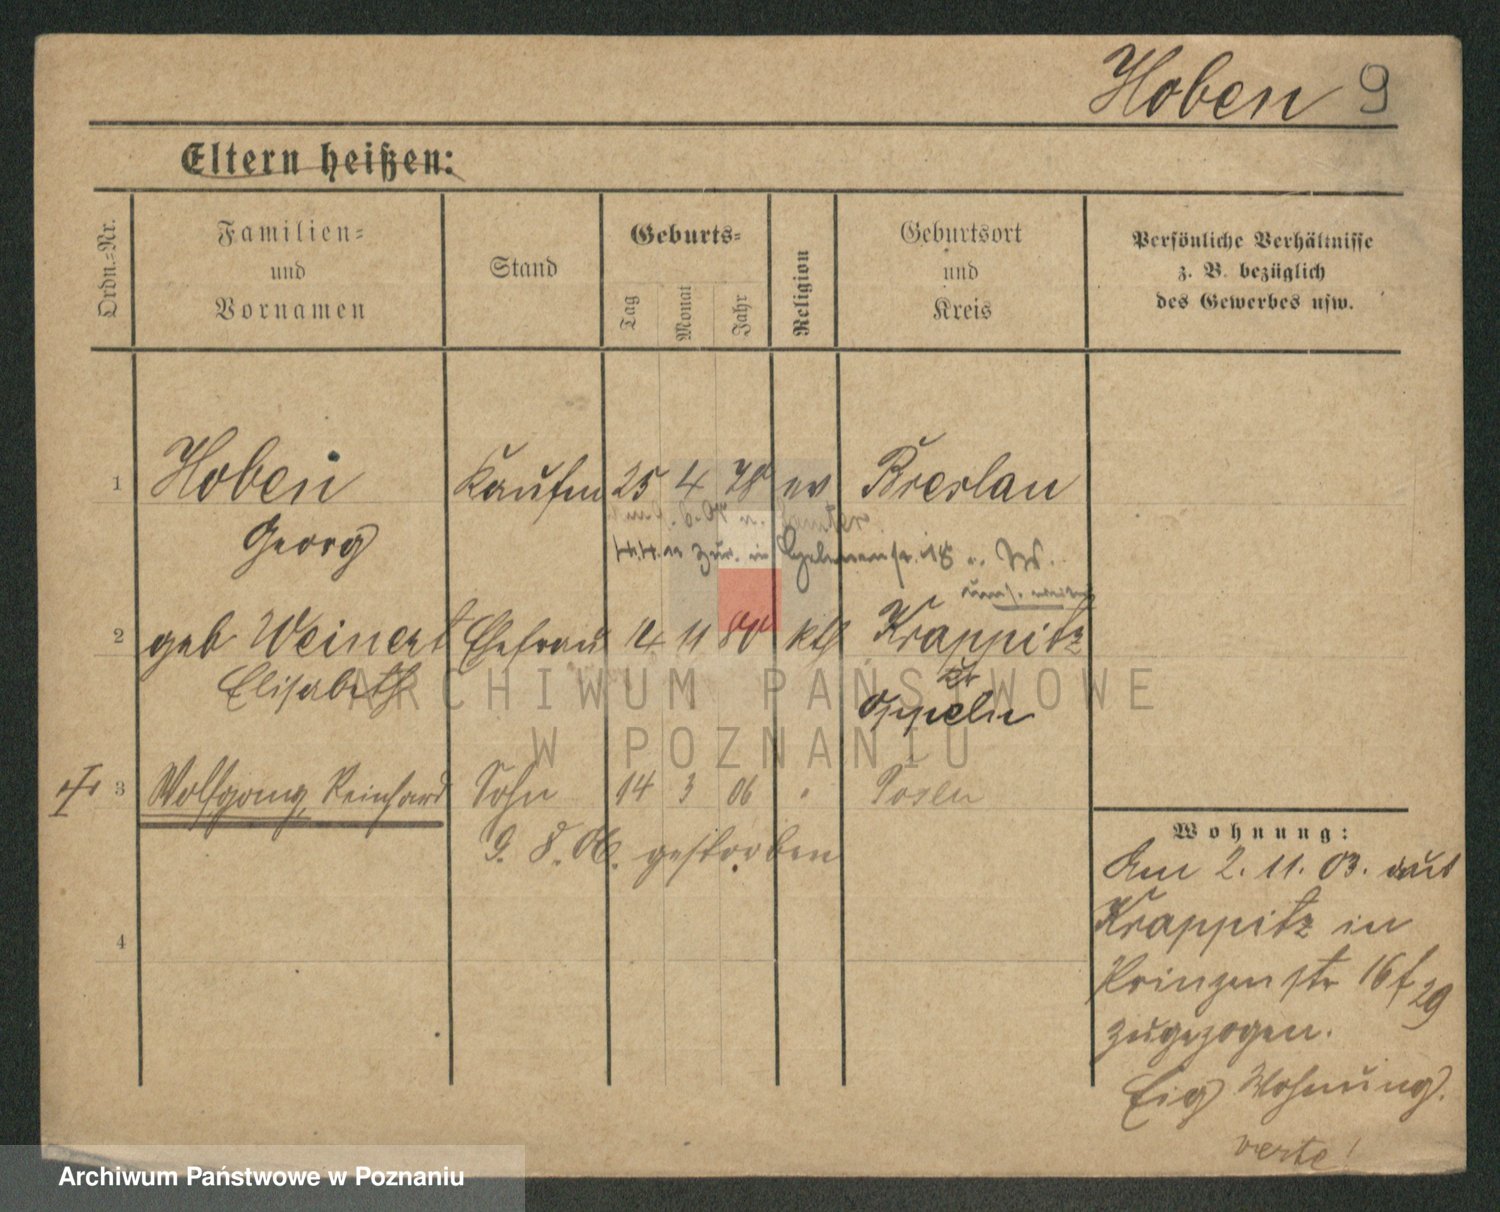 Hoben 9
Eltern heißen:
Ordn.-Nr.
Familien-
und
Vornamen
Stand
Geburts-
Tag
Monat
Jahr
Religion
Geburtsort
und
Kreis
Persönliche Verhältnisse
z. B. bezüglich
des Gewerbes usw.
1 Hoben Kaufm 25 4 78 ev Breslau
Georg
zur. in
2 geb Weinert Ehefrau 14 11 80 kth Krappitz
Elisabeth
Oppeln
3 Wolfgang, Reinhard Sohn 14 3 06 Posen
9. 8. 06. gestorben
4
Wohnung:
Am 2. 11. 03. aus
Krappitz in
Prinzenstr 16 f 29
zugezogen.
Eig Wohnung.
verte!
ARCHIWUM PAŃSTWOWE
W POZNANIU
Archiwum Państwowe w Poznaniu